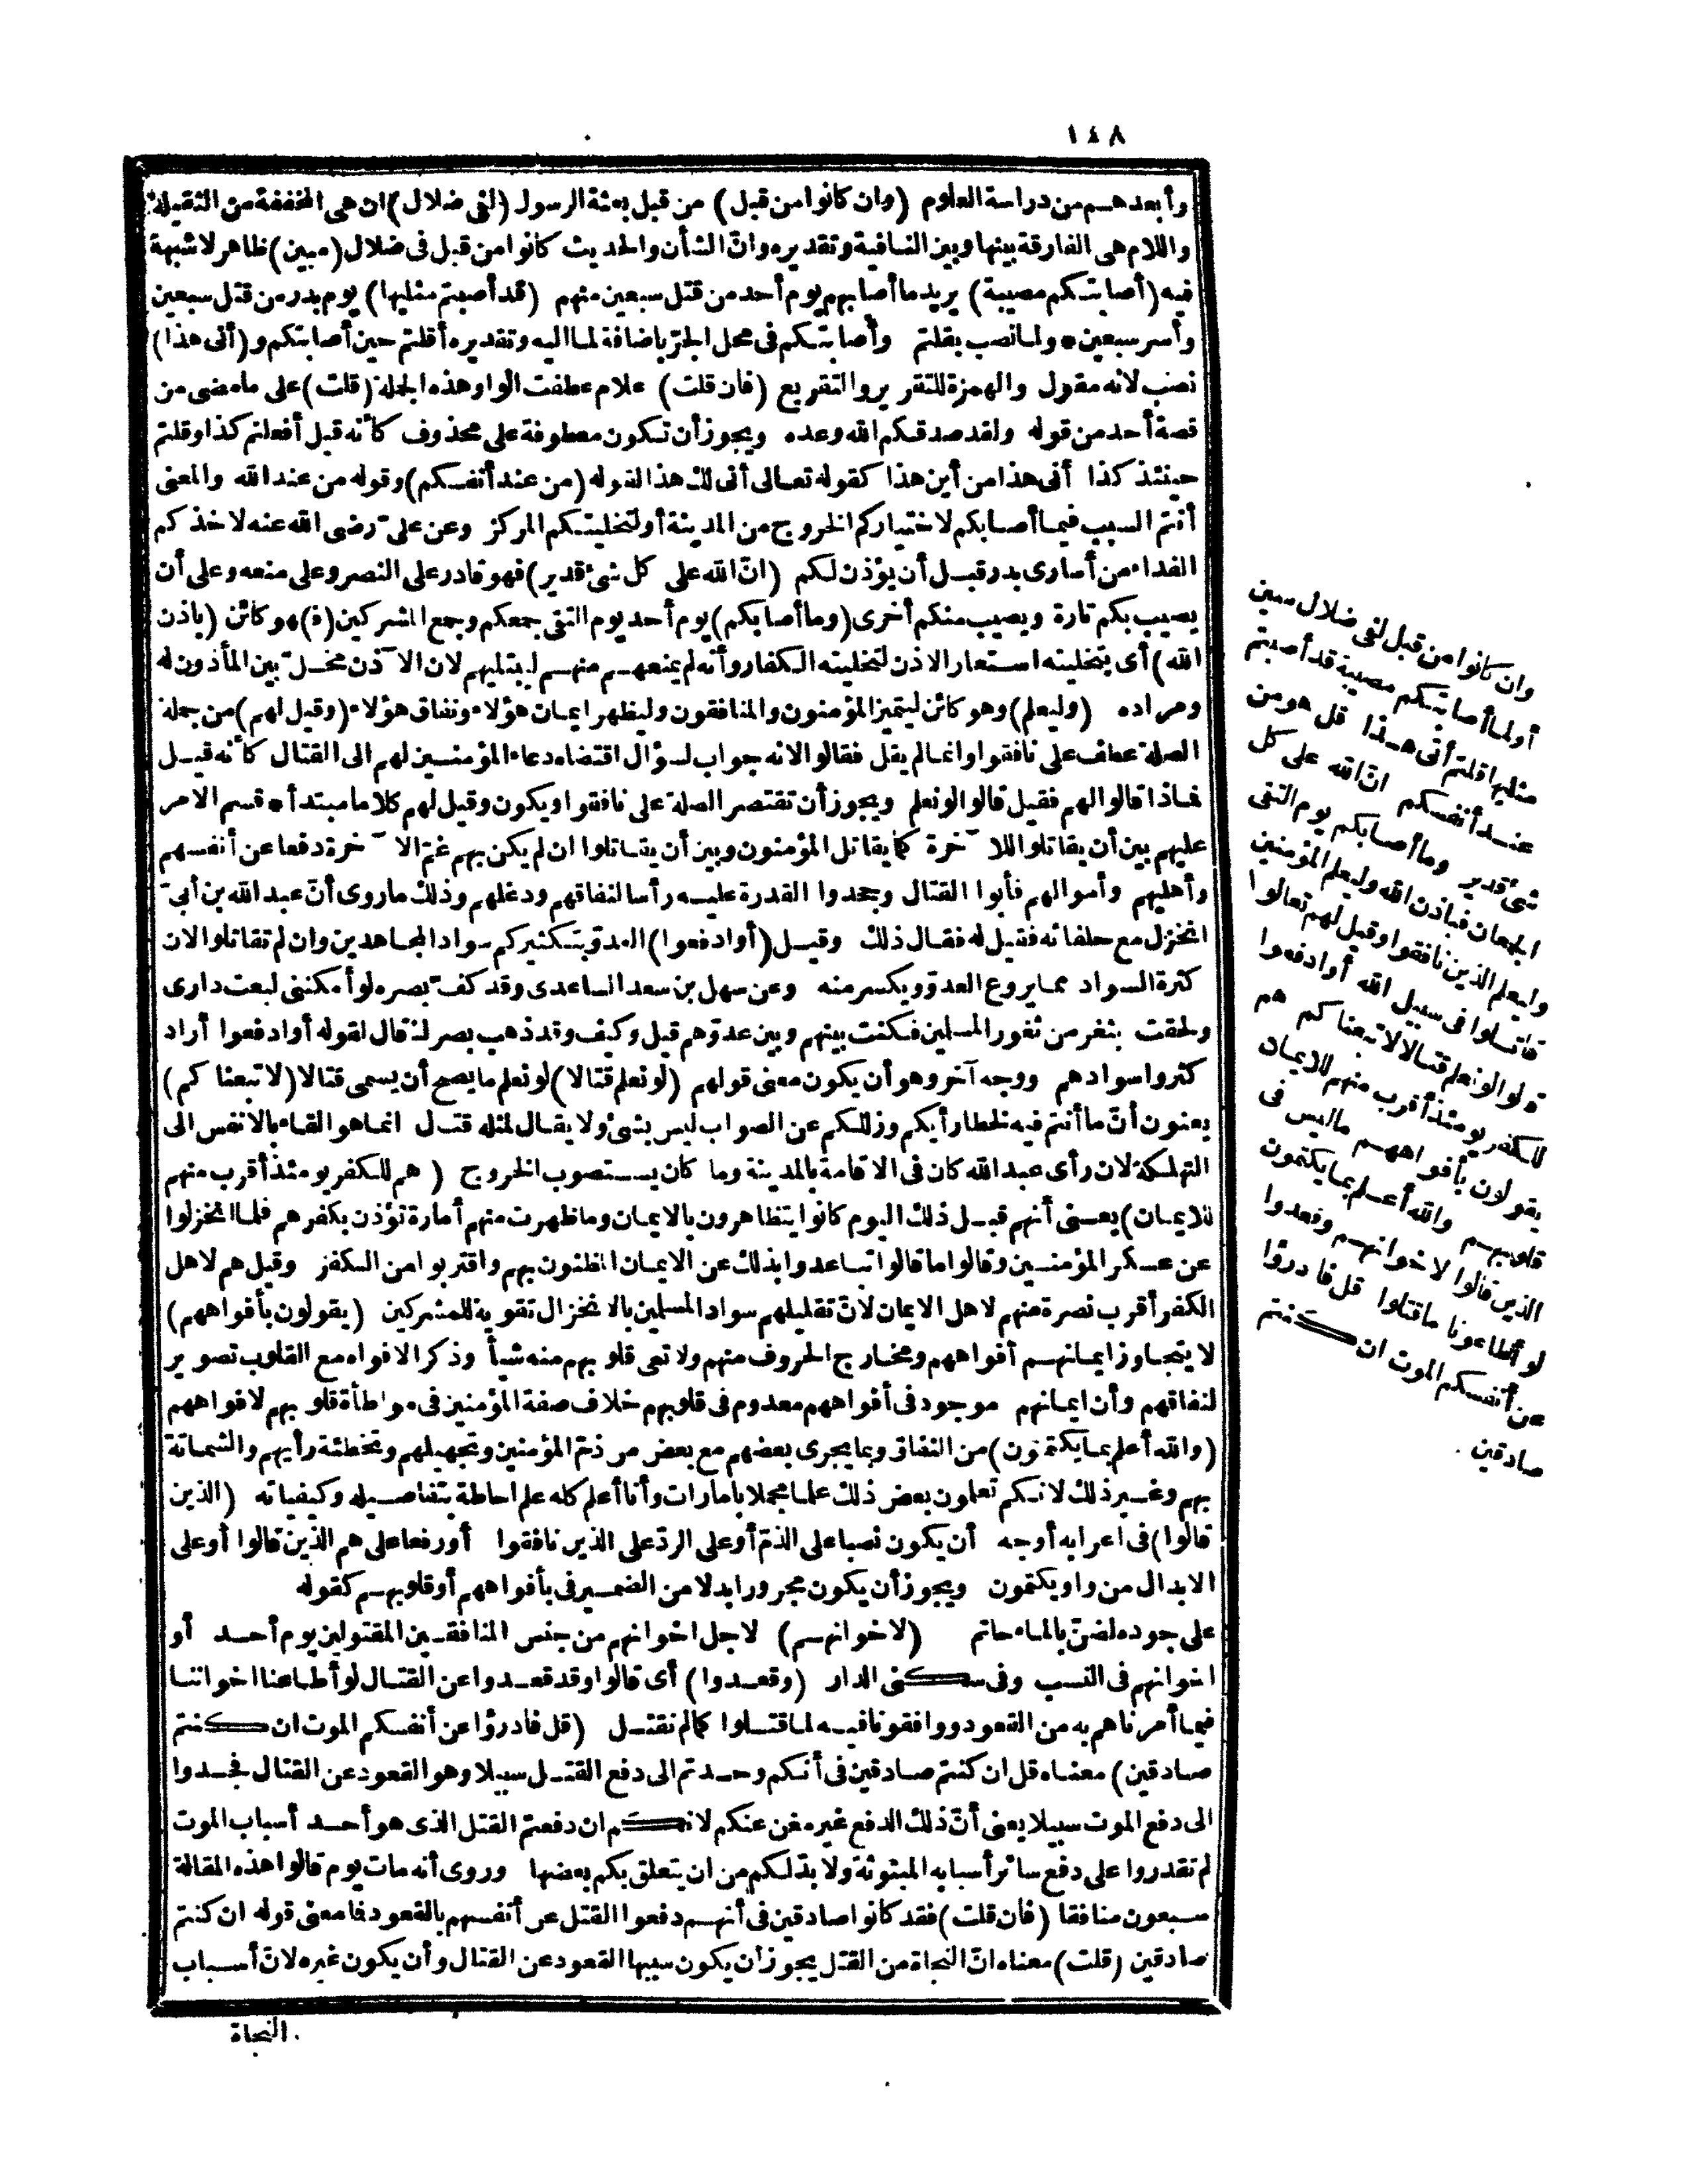 ١٤٨
وأبعدهم من دراسة العلوم (وان كانوا من قبل) من قبل بعثة الرسول (لفى ضلال) ان هى المخففة من الثقيلة
واللام هى الفارقة بينها وبين النافية وتقديره وانّ الشأن والحديث كانوا من قبل فى ضلال (مبين) ظاهر لا شبهة
فيه (أصابتكم مصيبة) يريد ما أصابهم يوم أحد من قتل سبعين منهم (قد أصبتم مثليها) يوم بدر من قتل سبعين
وأسر سبعين * ولما نصب بقلتم وأصابتكم فى محل الجرّ باضافة لما اليه وتقديره أقلتم حين أصابتكم و (أنى هذا)
نصب لانه مقول والهمزة للتقرير والتقريع (فان قلت) علام عطفت الواو هذه الجملة (قلت) على ما مضى من
قصة أحد من قوله ولقد صدقكم الله وعده ويجوز أن تكون معطوفة على محذوف كأنه قيل أفعلتم كذا وقلتم
حينئذ كذا أنى هذا من أين هذا كقوله تعالى أنى لك هذا لقوله (من عند أنفسكم) وقوله من عند الله والمعنى
أنتم السبب فيما أصابكم لاختياركم الخروج من المدينة أو لتخليتكم المركز وعن علىّ رضى الله عنه لاخذكم
الفداء من أسارى بدر قبل أن يؤذن لكم (انّ الله على كل شئ قدير) فهو قادر على النصر وعلى منعه وعلى أن
يصيب بكم تارة ويصيب منكم أخرى (وما أصابكم) يوم أحد يوم التقى جمعكم وجمع المشركين (ف) هو كائن (باذن
الله) أى بتخليته استعار الاذن لتخليته الكفار وأنه لم يمنعهم منهم ليبتليهم لان الآذن مخلّ بين المأذون له
ومراده (وليعلم) وهو كائن ليتميز المؤمنون والمنافقون وليظهر ايمان هؤلاء ونفاق هؤلاء (وقيل لهم) من جملة
الصلة عطف على نافقوا وانما لم يقل فقالوا لانه جواب لسؤال اقتضاه دعاء المؤمنين لهم الى القتال كأنه قيل
فماذا قالوا لهم فقيل قالوا لو نعلم ويجوز أن تقتصر الصلة على نافقوا ويكون وقيل لهم كلاما مبتدأ * قسم الامر
عليهم بين أن يقاتلوا للآخرة كما يقاتل المؤمنون وبين أن يقاتلوا ان لم يكن بهم غمّ الآخرة دفعا عن أنفسهم
وأهليهم وأموالهم فأبوا القتال وجحدوا القدرة عليه رأسا لنفاقهم ودغلهم وذلك ما روى أنّ عبد الله بن أبىّ
انخزل مع حلفائه فقيل له فقال ذلك وقيل (أوادفعوا) العدوّ بتكثيركم سواد المجاهدين وان لم تقاتلوا لان
كثرة السواد مما يروع العدوّ ويكسر منه وعن سهل بن سعد الساعدى وقد كفّ بصره لو أمكننى لبعت دارى
ولحقت بثغر من ثغور المسلمين فكنت بينهم وبين عدوّهم قيل وكيف وقد ذهب بصرك قال لقوله أوادفعوا أراد
كثروا سوادهم ووجه آخر وهو أن يكون معنى قولهم (لو نعلم قتالا) لو نعلم ما يصح أن يسمى قتالا (لاتبعناكم)
يعنون أنّ ما أنتم فيه لخطا رأيكم وزللكم عن الصواب ليس بشئ ولا يقال لمثله قتال انما هو القاء بالانفس الى
التهلكة لان رأى عبد الله كان فى الاقامة بالمدينة وما كان يستصوب الخروج (هم للكفر يومئذ أقرب منهم
للايمان) يعنى أنهم قبل ذلك اليوم كانوا يتظاهرون بالايمان وما ظهرت منهم أمارة تؤذن بكفرهم فلما انخزلوا
عن عسكر المؤمنين وقالوا ما قالوا تباعدوا بذلك عن الايمان المظنون بهم واقتربوا من الكفر وقيل هم لاهل
الكفر أقرب نصرة منهم لاهل الايمان لانّ تقليلهم سواد المسلمين بالانخزال تقوية للمشركين (يقولون بأفواههم)
لا يتجاوز ايمانهم أفواههم ومخارج الحروف منهم ولا تعى قلوبهم منه شيأ وذكر الافواه مع القلوب تصوير
لنفاقهم وأن ايمانهم موجود فى أفواههم معدوم فى قلوبهم خلاف صفة المؤمنين فى مواطأة قلوبهم لافواههم
(والله أعلم بما يكتمون) من النفاق وبما يجرى بعضهم مع بعض من ذمّ المؤمنين وتجهيلهم وتخطئة رأيهم والشماتة
بهم وغير ذلك لانكم تعلمون بعض ذلك علما مجملا بامارات وأنا أعلم كله علم احاطة بتفاصيله وكيفياته (الذين
قالوا) فى اعرابه أوجه أن يكون نصبا على الذمّ أو على الردّ على الذين نافقوا أو رفعا على هم الذين قالوا أو على
الابدال من واو يكتمون ويجوز أن يكون مجرورا بدلا من الضمير فى بأفواههم أو قلوبهم كقوله
على جوده لضنّ بالماء حاتم (لاخوانهم) لاجل اخوانهم من جنس المنافقين المقتولين يوم أحد أو
اخوانهم فى النسب وفى سكنى الدار (وقعدوا) أى قالوا وقد قعدوا عن القتال لو أطاعنا اخواننا
فيما أمرناهم به من القعود ووافقونا فيه لما قتلوا كما لم نقتل (قل فادرؤا عن أنفسكم الموت ان كنتم
صادقين) معناه قل ان كنتم صادقين فى أنكم وجدتم الى دفع القتل سبيلا وهو القعود عن القتال فجدوا
الى دفع الموت سبيلا يعنى أنّ ذلك الدفع غير مغن عنكم لانكم ان دفعتم القتل الذى هو أحد أسباب الموت
لم تقدروا على دفع سائر أسبابه المبثوثة ولا بدّ لكم من ان يتعلق بكم بعضها وروى أنه مات يوم قالوا هذه المقالة
سبعون منافقا (فان قلت) فقد كانوا صادقين فى أنهم دفعوا القتل عن أنفسهم بالقعود فما معنى قوله ان كنتم
صادقين (قلت) معناه انّ النجاة من القتل يجوز أن يكون سببها القعود عن القتال وأن يكون غيره لانّ أسباب
النجاة
وان كانوا من قبل لفى ضلال مبين
أولما أصابتكم مصيبة قد أصبتم
مثليها قلتم أنى هذا قل هو من
عند أنفسكم انّ الله على كل
شئ قدير وما أصابكم يوم التقى
الجمعان فباذن الله وليعلم المؤمنين
وليعلم الذين نافقوا وقيل لهم تعالوا
قاتلوا فى سبيل الله أوادفعوا
قالوا لو نعلم قتالا لاتبعناكم هم
للكفر يومئذ أقرب منهم للايمان
يقولون بأفواههم ما ليس فى
قلوبهم والله أعلم بما يكتمون
الذين قالوا لاخوانهم وقعدوا
لو أطاعونا ما قتلوا قل فادرؤا
عن أنفسكم الموت ان كنتم
صادقين